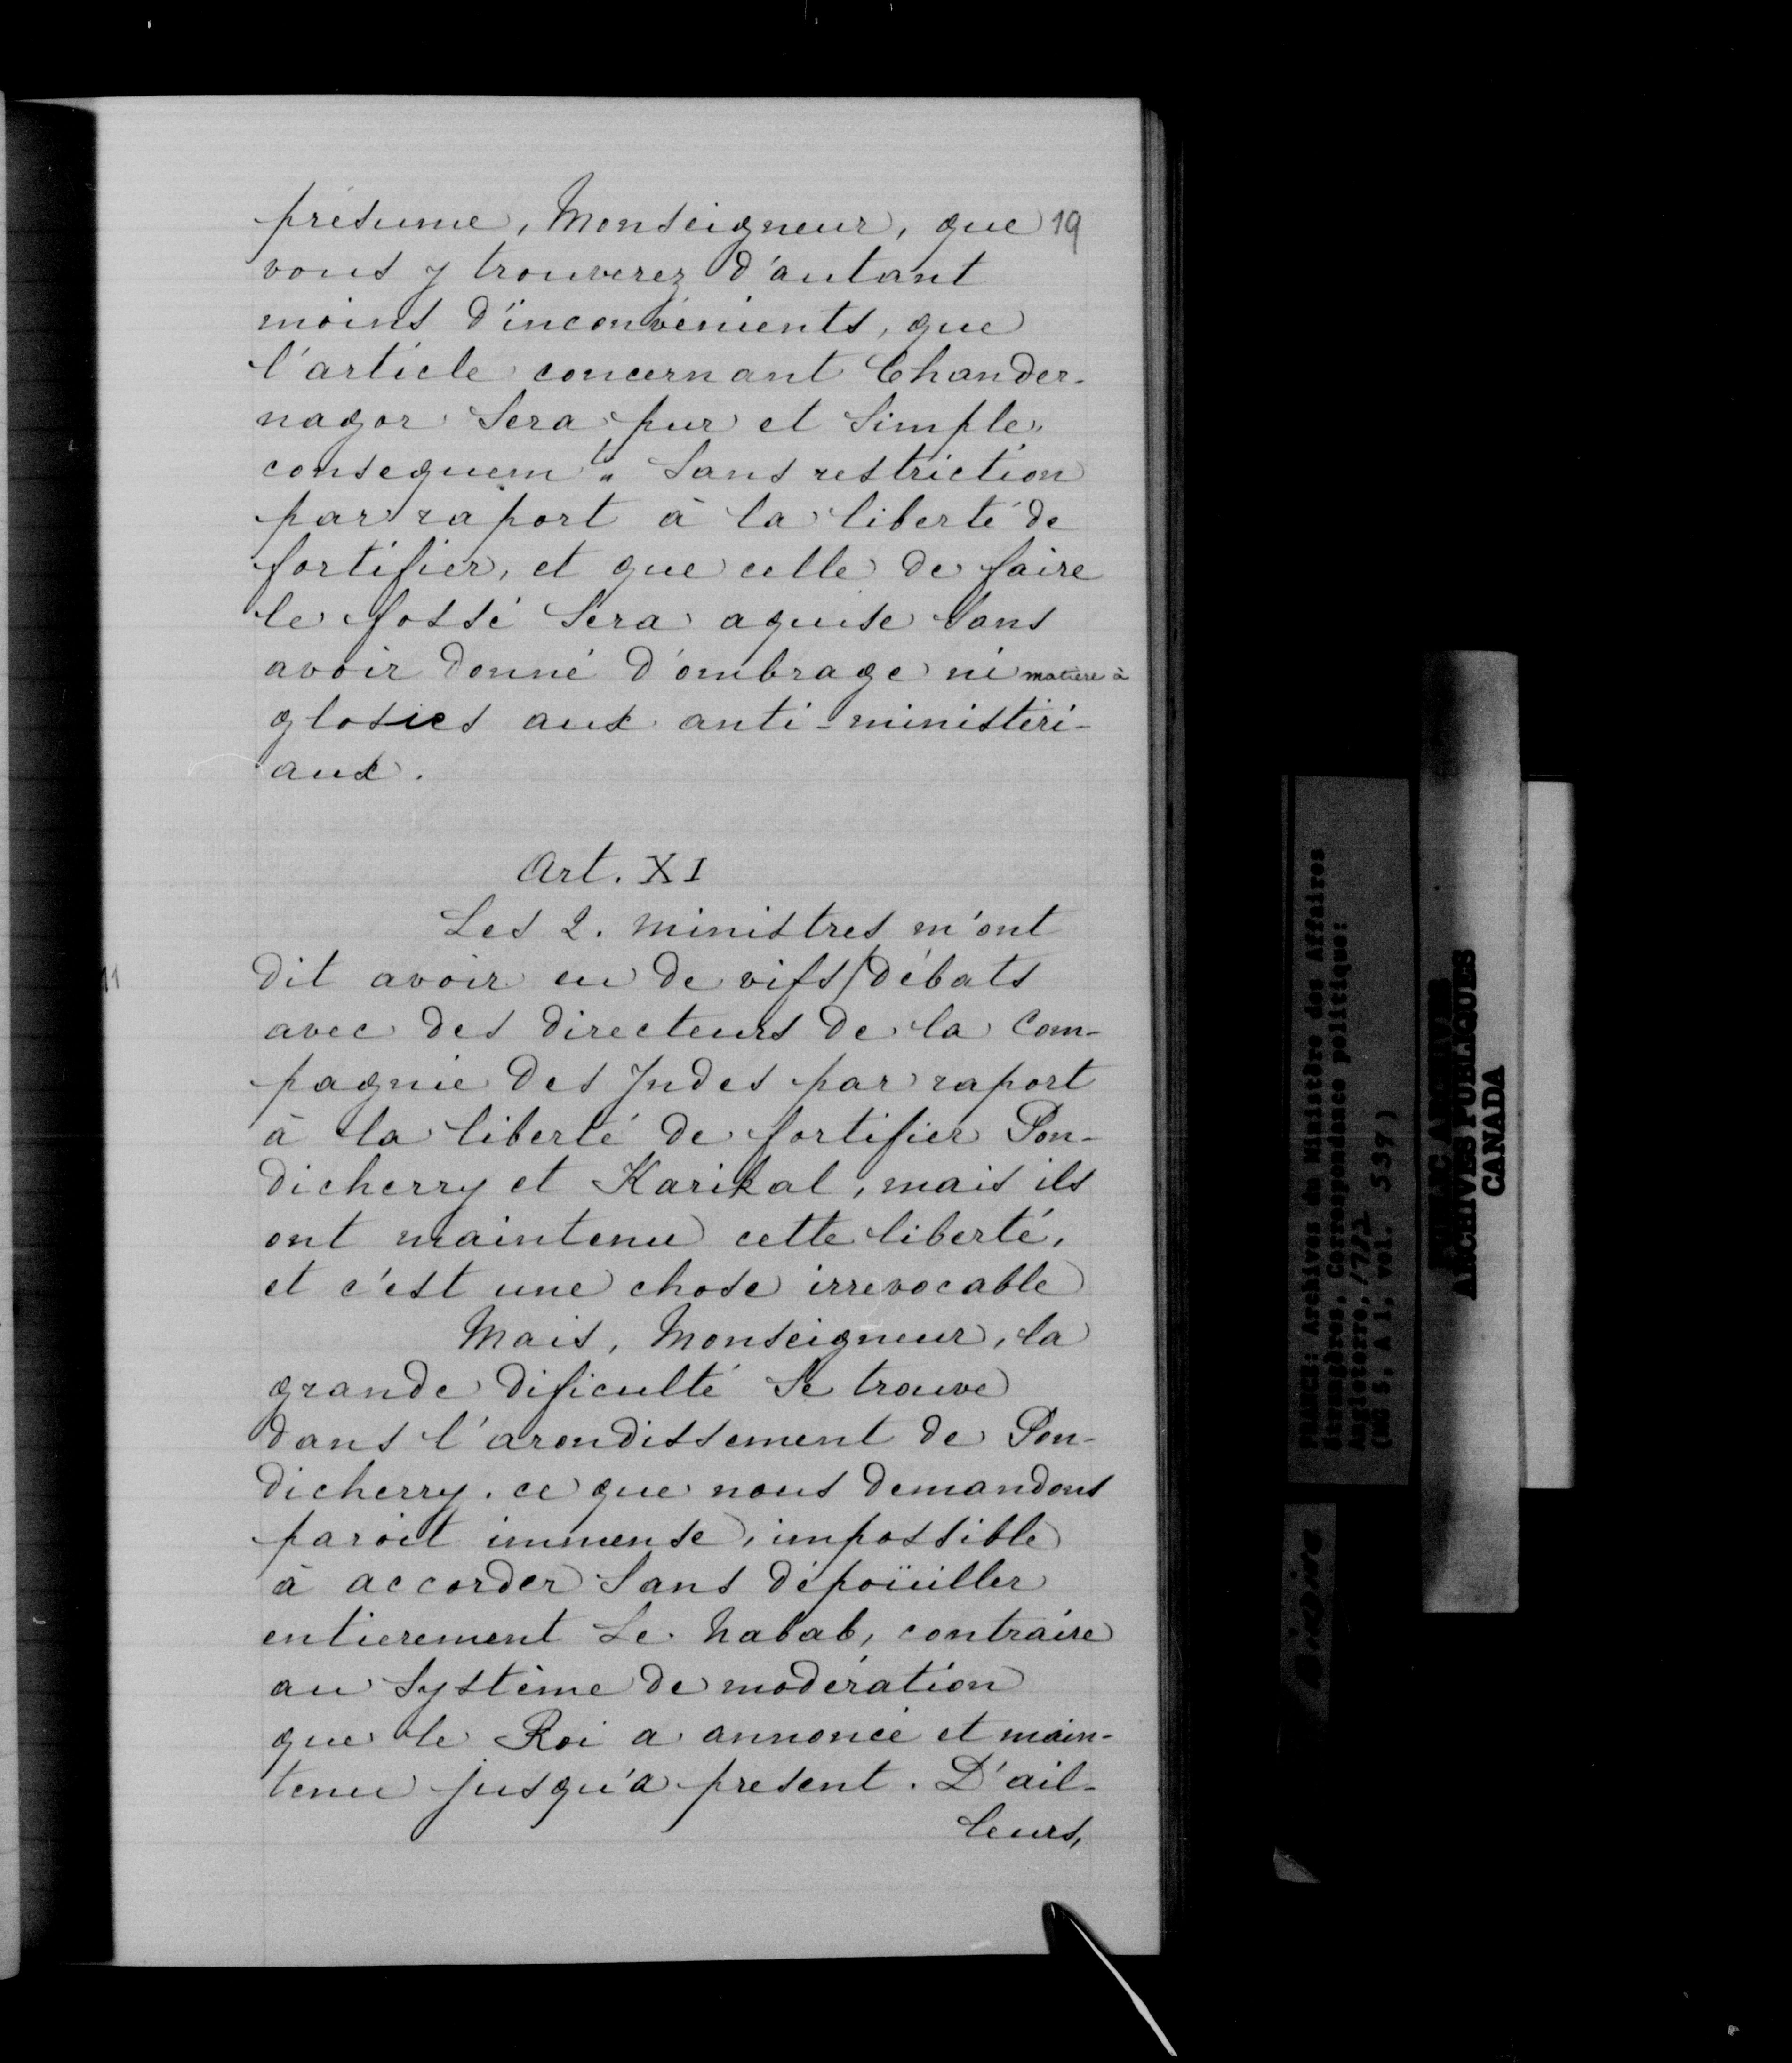 présume, Monseigneur, que 19
vous y trouverez d'autant
moins d'inconvénients, que
l'article concernant Chander-
nagor sera pur et simple,
consequem.ᵗ sans restriction
par raport à la liberté de
fortifier, et que celle de faire
le fossé sera aquise sans
avoir donné d'ombrage ni matière à
glosies aux anti-ministéri-
aux.
Art. XI
Les 2. ministres m'ont
dit avoir eu de vifs débats
avec des directeurs de la Com-
pagnie des Indes par raport
à la liberté de fortifier Pon-
dicherry et Karikal, mais ils
ont maintenu cette liberté,
et c'est une chose irrevocable
Mais, Monseigneur, la
grande dificulté se trouve
dans l'arondissement de Pon-
dicherry. ce que nous demandons
paroit immense, impossible
à accorder sans dépoüiller
entierement Le Nabab, contraire
au Système de modération
que le Roi a annoncé et main-
tenu jusqu'à present. D'ail-
leurs,
11
FRANCE: Archives du Ministère des Affaires
Étrangères, Correspondance politique:
Angleterre, 1782
(MG 5, A 1, vol. 539)
PUBLIC ARCHIVES
ARCHIVES PUBLIQUES
CANADA